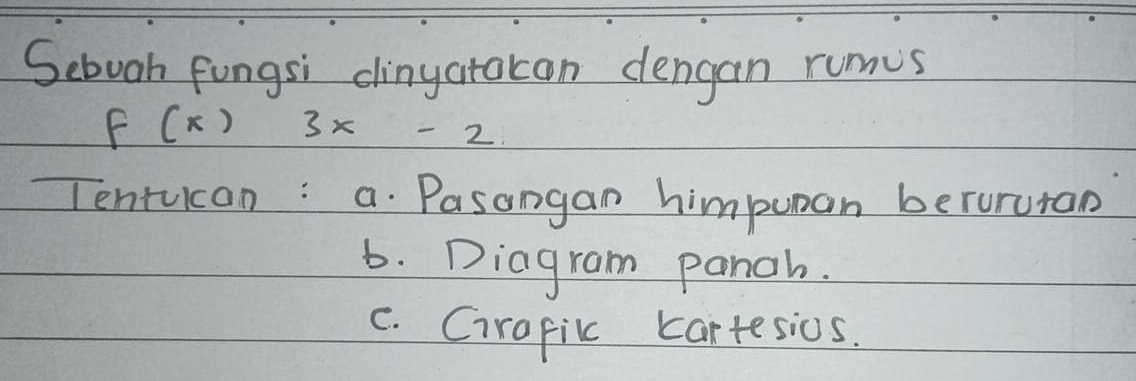 Sebuah fungsi dinyatakan dengan rumus
f (x) 3x - 2.
Tentukan : a. Pasangan himpunan berurutan
b. Diagram panah.
c. Grafik kartesius.